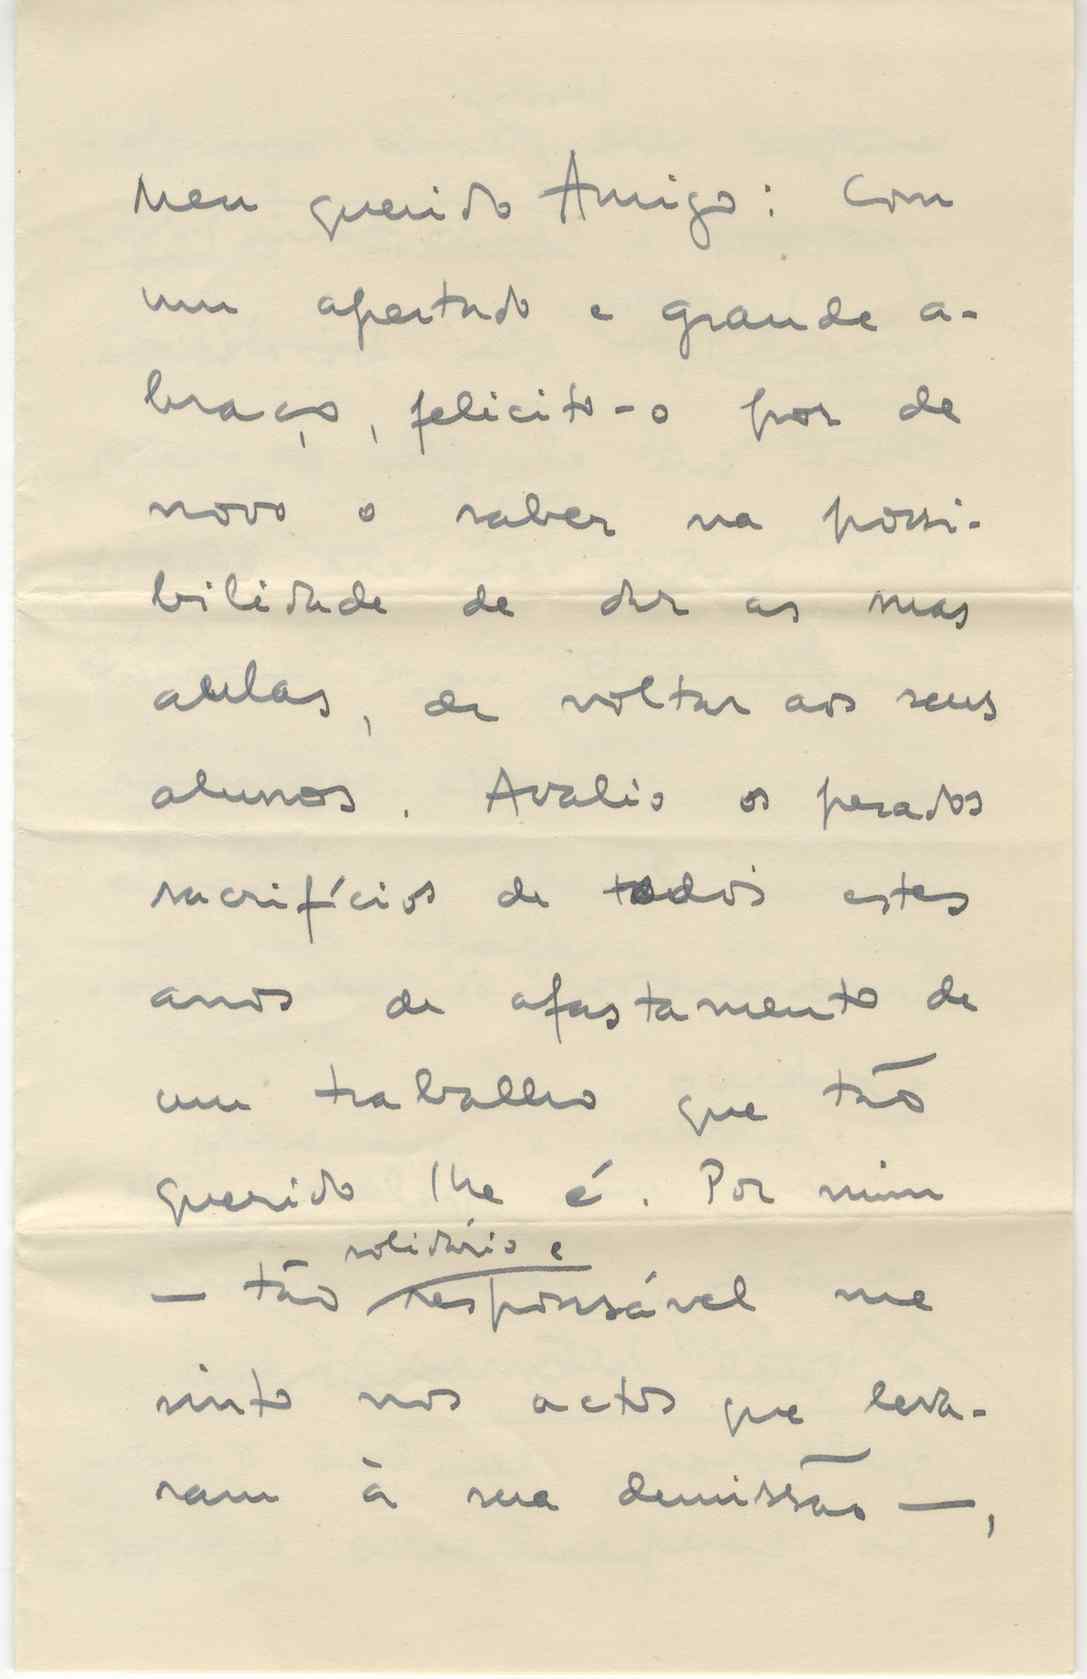 Meu querido Amigo: Com
um apertado e grande a-
braço, felicito-o por de
novo o saber na possi-
bilidade de dar as suas
aulas, de voltar aos seus
alunos. Avalio os pesados
sacrifícios de todos estes
anos de afastamento de
um trabalho que tão
querido lhe é. Por mim
solidário e
— tão responsável me
sinto nos actos que leva-
ram à sua demissão —,